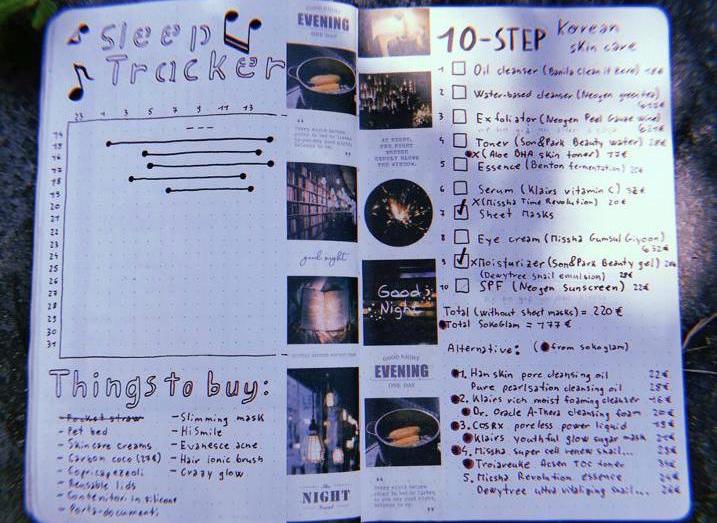 Sleep
Tracker
23 1 3 5 7 9 11 13
14
15
16
17
18
19
20
21
22
23
24
25
26
27
28
29
30
31
Things to buy:
- Pocket straw
- Pet bed
- Skincare creams
- Carbon coco (27€)
- Copricapezoli
- Reusable lids
- Contenitori in silicone
- Porta-documenti
- Slimming mask
- HiSmile
- Evanesce acne
- Hair ionic brush
- Crazy glow
GOOD NIGHT
EVENING
ONE DAY
good night
The
NIGHT
AT NIGHT,
Good
Night
GOOD NIGHT
EVENING
ONE DAY
10-STEP Korean
skin care
1 Oil cleanser (Banila Clean it Zero)
2 Water-based cleanser (Neogen green tea)
3 Exfoliator (Neogen Peel Gauze wine)
4 Toner (Son&Park Beauty water)
X (Aloe BHA skin toner)
5 Essence (Benton fermentation)
6 Serum (Klairs vitamin C)
X (Missha Time Revolution) 20€
7 Sheet Masks
8 Eye cream (Missha Gumsul Giyoon)
9 X Moisturizer (Son&Park Beauty gel)
(Dewytree snail emulsion)
10 SPF (Neogen Sunscreen) 22€
Total (without sheet masks) = 220€
Total SokoGlam = 177€
Alternative: ( from sokoglam)
1. Hanskin pore cleansing oil 22€
Pure pearlsation cleansing oil 25€
2. Klairs rich moist foaming cleanser 16€
Dr. Oracle A-Thera cleansing foam 20€
3. COSRX poreless power liquid 19€
Klairs youthful glow sugar mask
4. Missha super cell renew snail...
Troiareuke Acsen TOC toner
5. Missha Revolution essence
Dewytree ultra vitalizing snail...